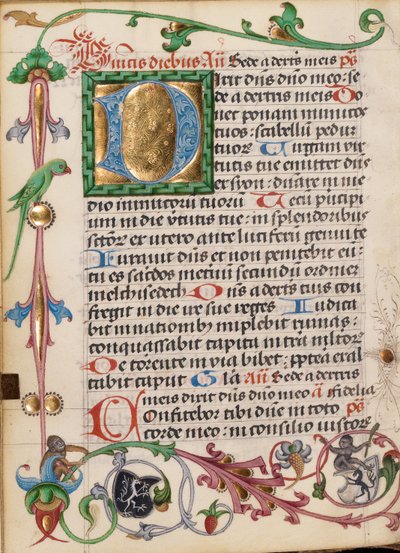 Dnicis diebus Añ Sede a dextris meis ps
Dixit dñs dño meo: se
de a dextris meis Do
nec ponam inimicos
tuos: scabellū pedū
tuorū Virgam vir
tutis tue emittet dñs
ex syon: dñare in me
dio inimicorū tuorū Tecū pricipi
um in die v̄tutis tue: in splendoribus
sctorꝝ ex utero ante luciferū genui te
Iurauit dñs et non penitebit eū:
tu es sacdos in eternū secundū ordinem
melchisedech Dñs a dextris tuis con
fregit in die ire sue reges Iudica
bit in nationibꝰ implebit ruinas:
conquassabit capita in tra mltorꝝ
De torente in via bibet: pptea exal
tabit caput Gl̄a Añ Sede a dextris
meis dixit dñs dño meo a Fidelia
Confitebor tibi dñe in toto ps
corde meo: in consilio iustorꝝ